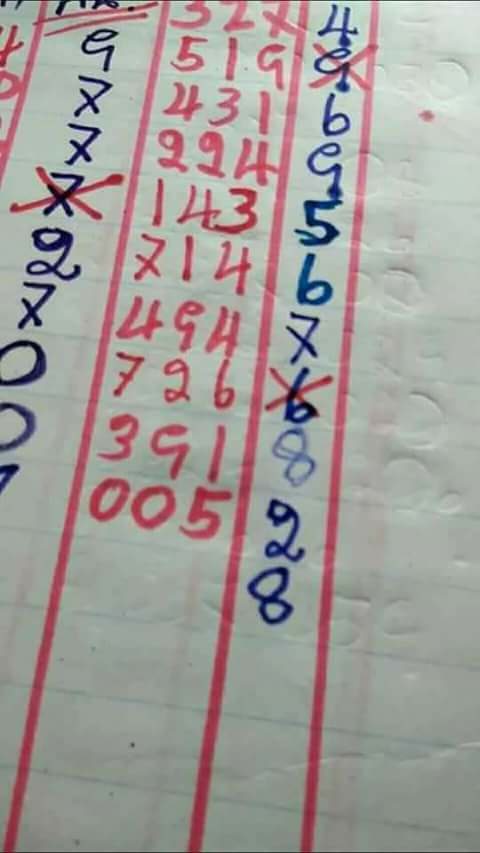 327 4
9 519 9
7 431 6
7 224 9
7 143 5
2 714 6
7 494 7
0 726 6
0 391 8
005 2
8